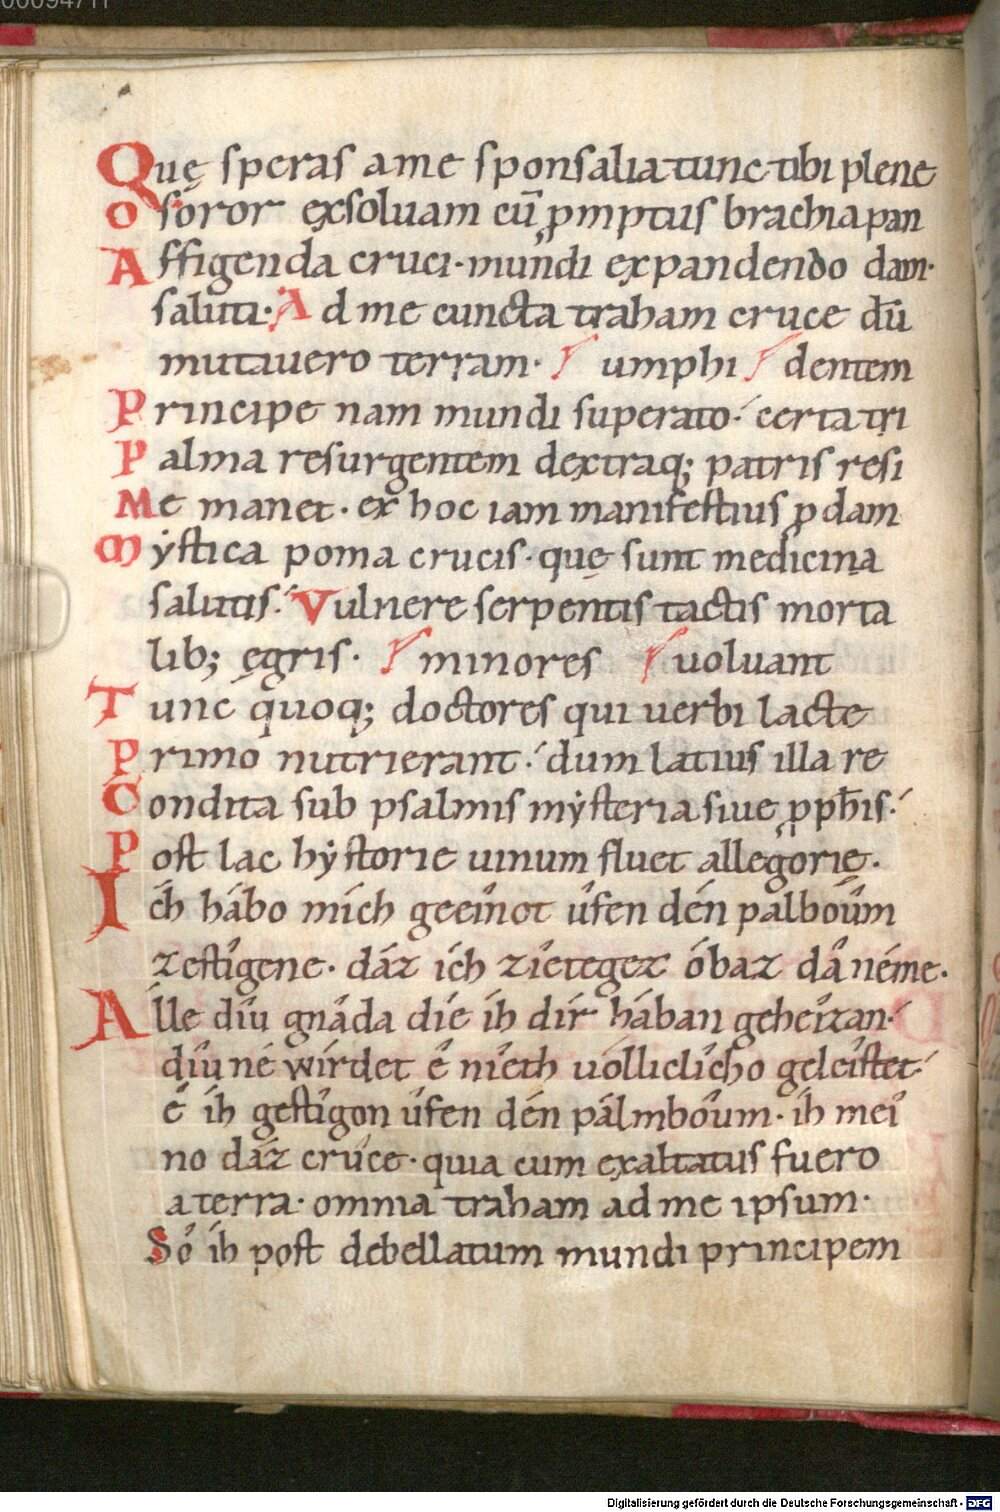 00094711
Quę speras a me sponsalia tunc tibi plene
O soror exsoluam cū ꝓmptus brachia pan
Affigenda cruci· mundi expandendo dam·
saluti· Ad me cuncta traham cruce dū
mutauero terram· umphi dentem
Principe nam mundi superato· certa tri
Palma resurgentem dextraq; patris resi
Me manet· ex hoc iam manifestius ꝓdam
Mẏstica poma crucis· quę sunt medicina
salutis· Vulnere serpentis tactis morta
lib; ęgris· minores uoluant
Tunc quoq; doctores qui uerbi lacte
Primo nutrierant· dum latius illa re
Condita sub psalmis mẏsteria siue ꝓpħis·
Post lac hẏstorie uinum fluet allegorię·
Ich hábo mích geeinot ûfen dén palboûm
zestîgene· dáz ích zîeteger óbaz dâ néme·
Alle díu gnâda díe íh dír hában geheîzan·
díu né wírdet ê nîeth uóllíclîcho geleîstet·
ê íh gestîgon ûfen dén pálmboûm· íh meî
no dáz crûce· quia cum exaltatus fuero
a terra· omnia traham ad me ipsum·
Sô íh post debellatum mundi principem
Digitalisierung gefördert durch die Deutsche Forschungsgemeinschaft - DFG